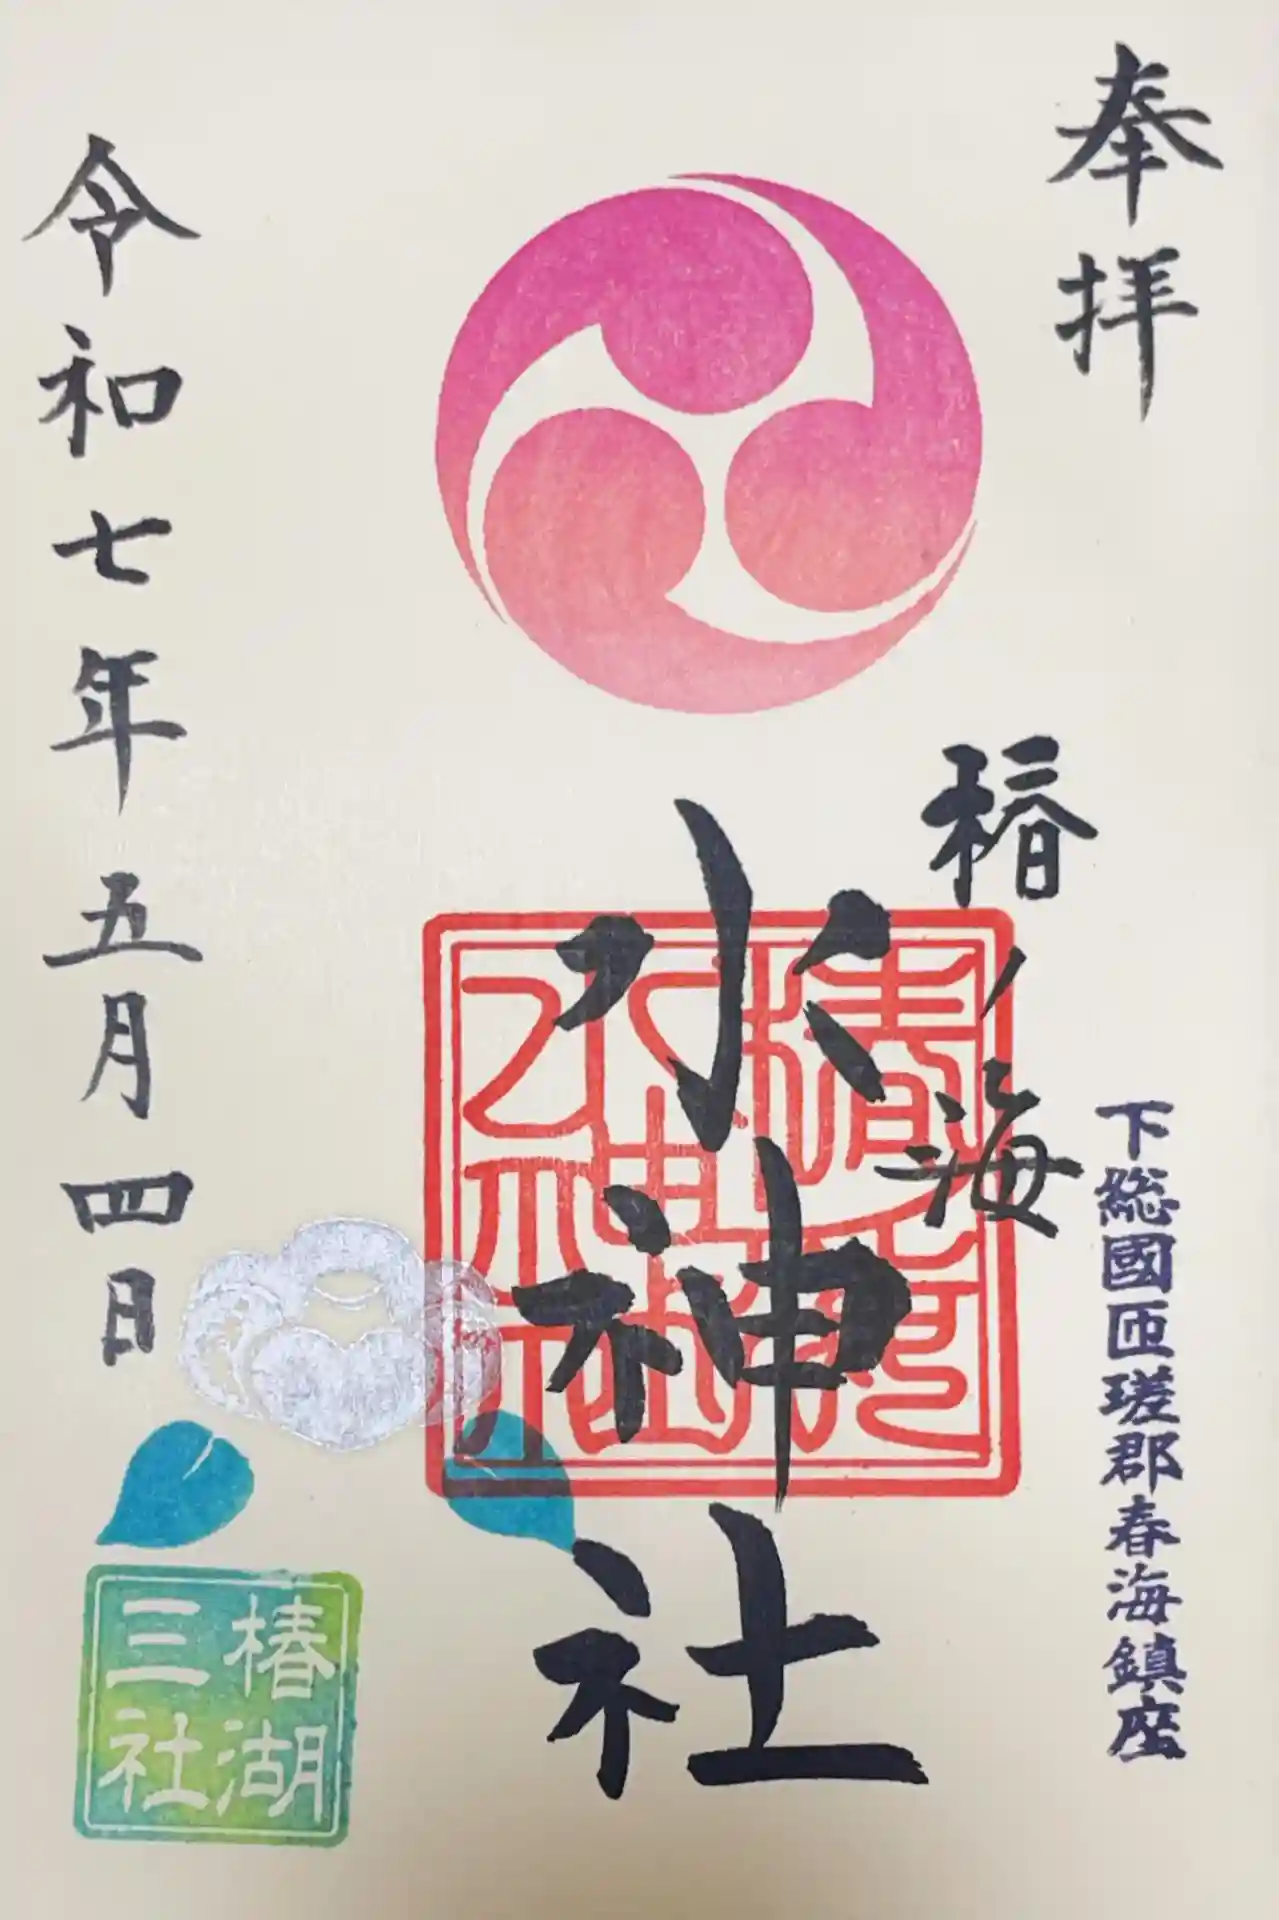 奉拝
下総國匝瑳郡春海鎮座
椿ノ海
水神社
令和七年五月四日
椿湖
三社